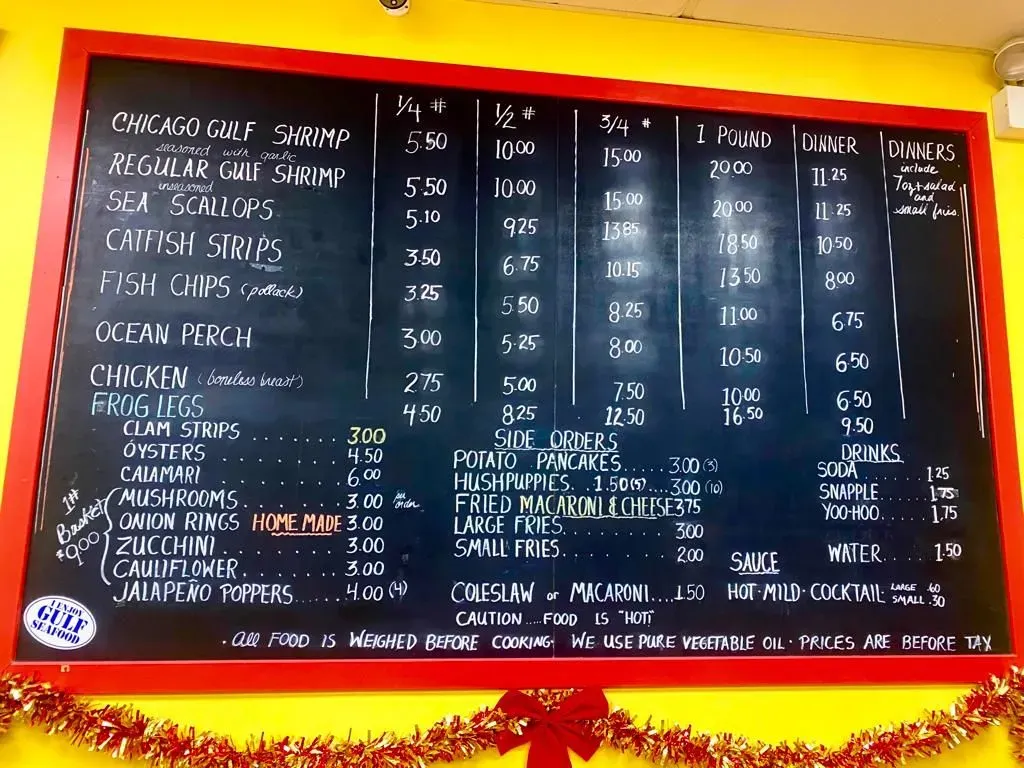 1/4 # 1/2 # 3/4 # 1 POUND DINNER DINNERS
include
7oz + salad
and
small fries.
CHICAGO GULF SHRIMP 5.50 10.00 15.00 20.00 11.25
seasoned with garlic
REGULAR GULF SHRIMP 5.50 10.00 15.00 20.00 11.25
unseasoned
SEA SCALLOPS 5.10 9.25 13.85 18.50 10.50
CATFISH STRIPS 3.50 6.75 10.15 13.50 8.00
FISH CHIPS (pollack) 3.25 5.50 8.25 11.00 6.75
OCEAN PERCH 3.00 5.25 8.00 10.50 6.50
CHICKEN (boneless breast) 2.75 5.00 7.50 10.00 6.50
FROG LEGS 4.50 8.25 12.50 16.50 9.50
CLAM STRIPS ....... 3.00
OYSTERS ......... 4.50
CALAMARI ........ 6.00
1# Basket $9.00
MUSHROOMS ...... 3.00 per order
ONION RINGS HOME MADE 3.00
ZUCCHINI ........ 3.00
CAULIFLOWER ...... 3.00
JALAPEÑO POPPERS ..... 4.00 (4)
SIDE ORDERS
POTATO PANCAKES ..... 3.00 (3)
HUSHPUPPIES .. 1.50 (5) ..... 3.00 (10)
FRIED MACARONI & CHEESE 3.75
LARGE FRIES ......... 3.00
SMALL FRIES ......... 2.00
COLESLAW or MACARONI .... 1.50
CAUTION .... FOOD IS "HOT"
DRINKS
SODA ..... 1.25
SNAPPLE ..... 1.75
YOO-HOO ..... 1.75
WATER ..... 1.50
SAUCE
HOT · MILD · COCKTAIL LARGE .60
SMALL .30
I ENJOY
GULF
SEAFOOD
· All FOOD IS WEIGHED BEFORE COOKING · WE USE PURE VEGETABLE OIL · PRICES ARE BEFORE TAX